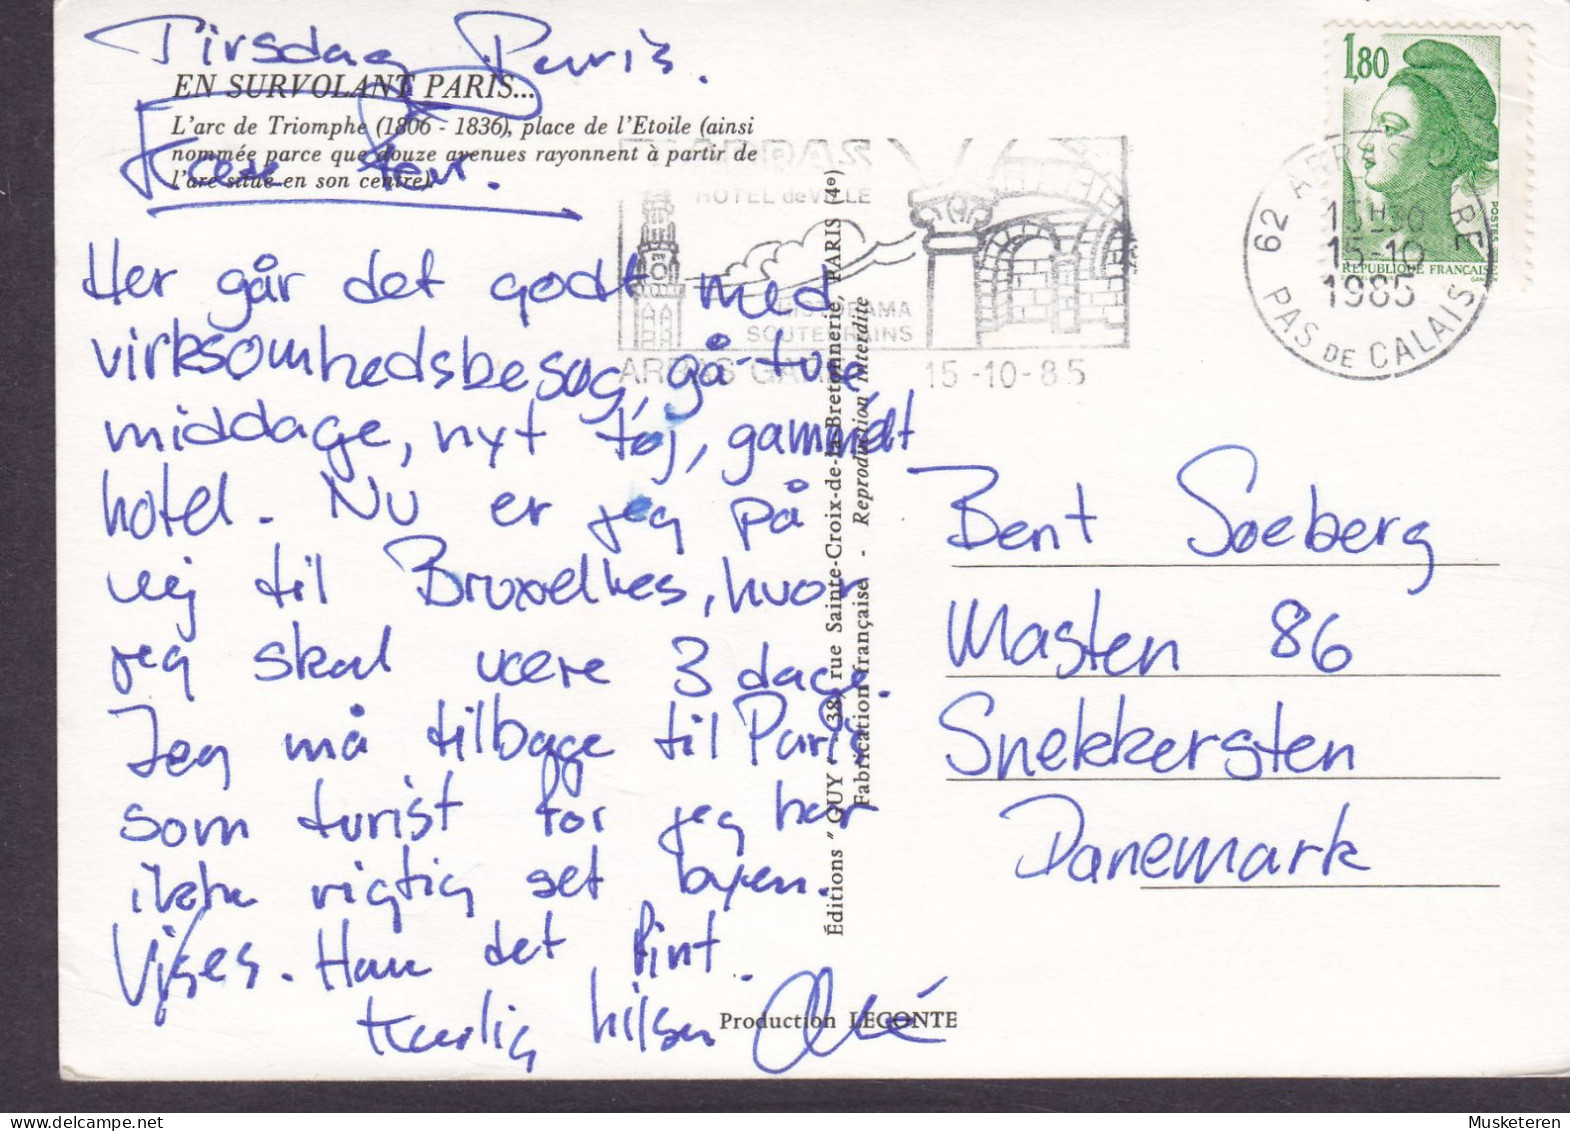 Tirsdag Paris.
EN SURVOLANT PARIS...
L'arc de Triomphe (1806 - 1836), place de l'Etoile (ainsi
nommée parce que douze avenues rayonnent à partir de
l'arc situé en son centre).
Kære
Her går det godt med
virksomhedsbesøg, gå-ture,
middage, nyt tøj, gammelt
hotel. Nu er jeg på
vej til Bruxelles, hvor
jeg skal være 3 dage.
Jeg må tilbage til Paris
som turist for jeg har
ikke rigtig set byen.
Vi ses. Hav det fint.
Kærlig hilsen
Production LECONTE
Éditions "GUY" - 38, rue Sainte-Croix-de-la-Bretonnerie, PARIS (4e)
Fabrication française - Reproduction interdite
ARRAS
HOTEL de VILLE
HISTORAMA
SOUTERRAINS
ARRAS GARE 15-10-85
62 ARRAS GARE
15-10
1985
PAS DE CALAIS
1,80
POSTES
REPUBLIQUE FRANÇAISE
Bent Søeberg
Masten 86
Snekkersten
Danemark
Musketeren